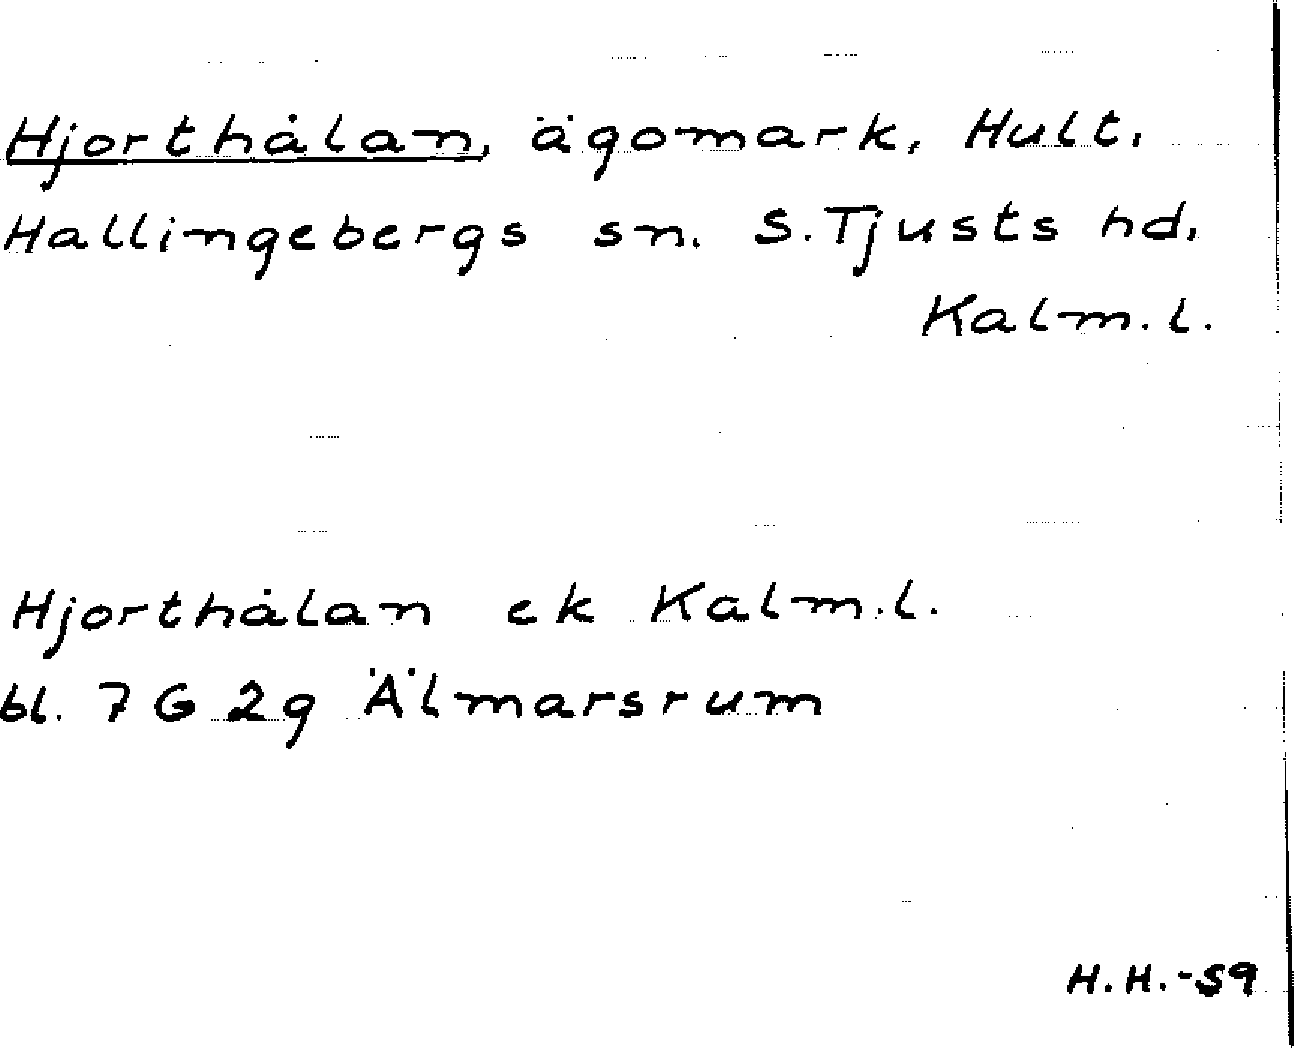 Hjorthålan, ägomark, Hult,
Hallingebergs sn. S. Tjusts hd,
Kalm. l.
Hjorthålan ek Kalm. l.
bl. 7 G 2g Älmarsrum
H. H. -59